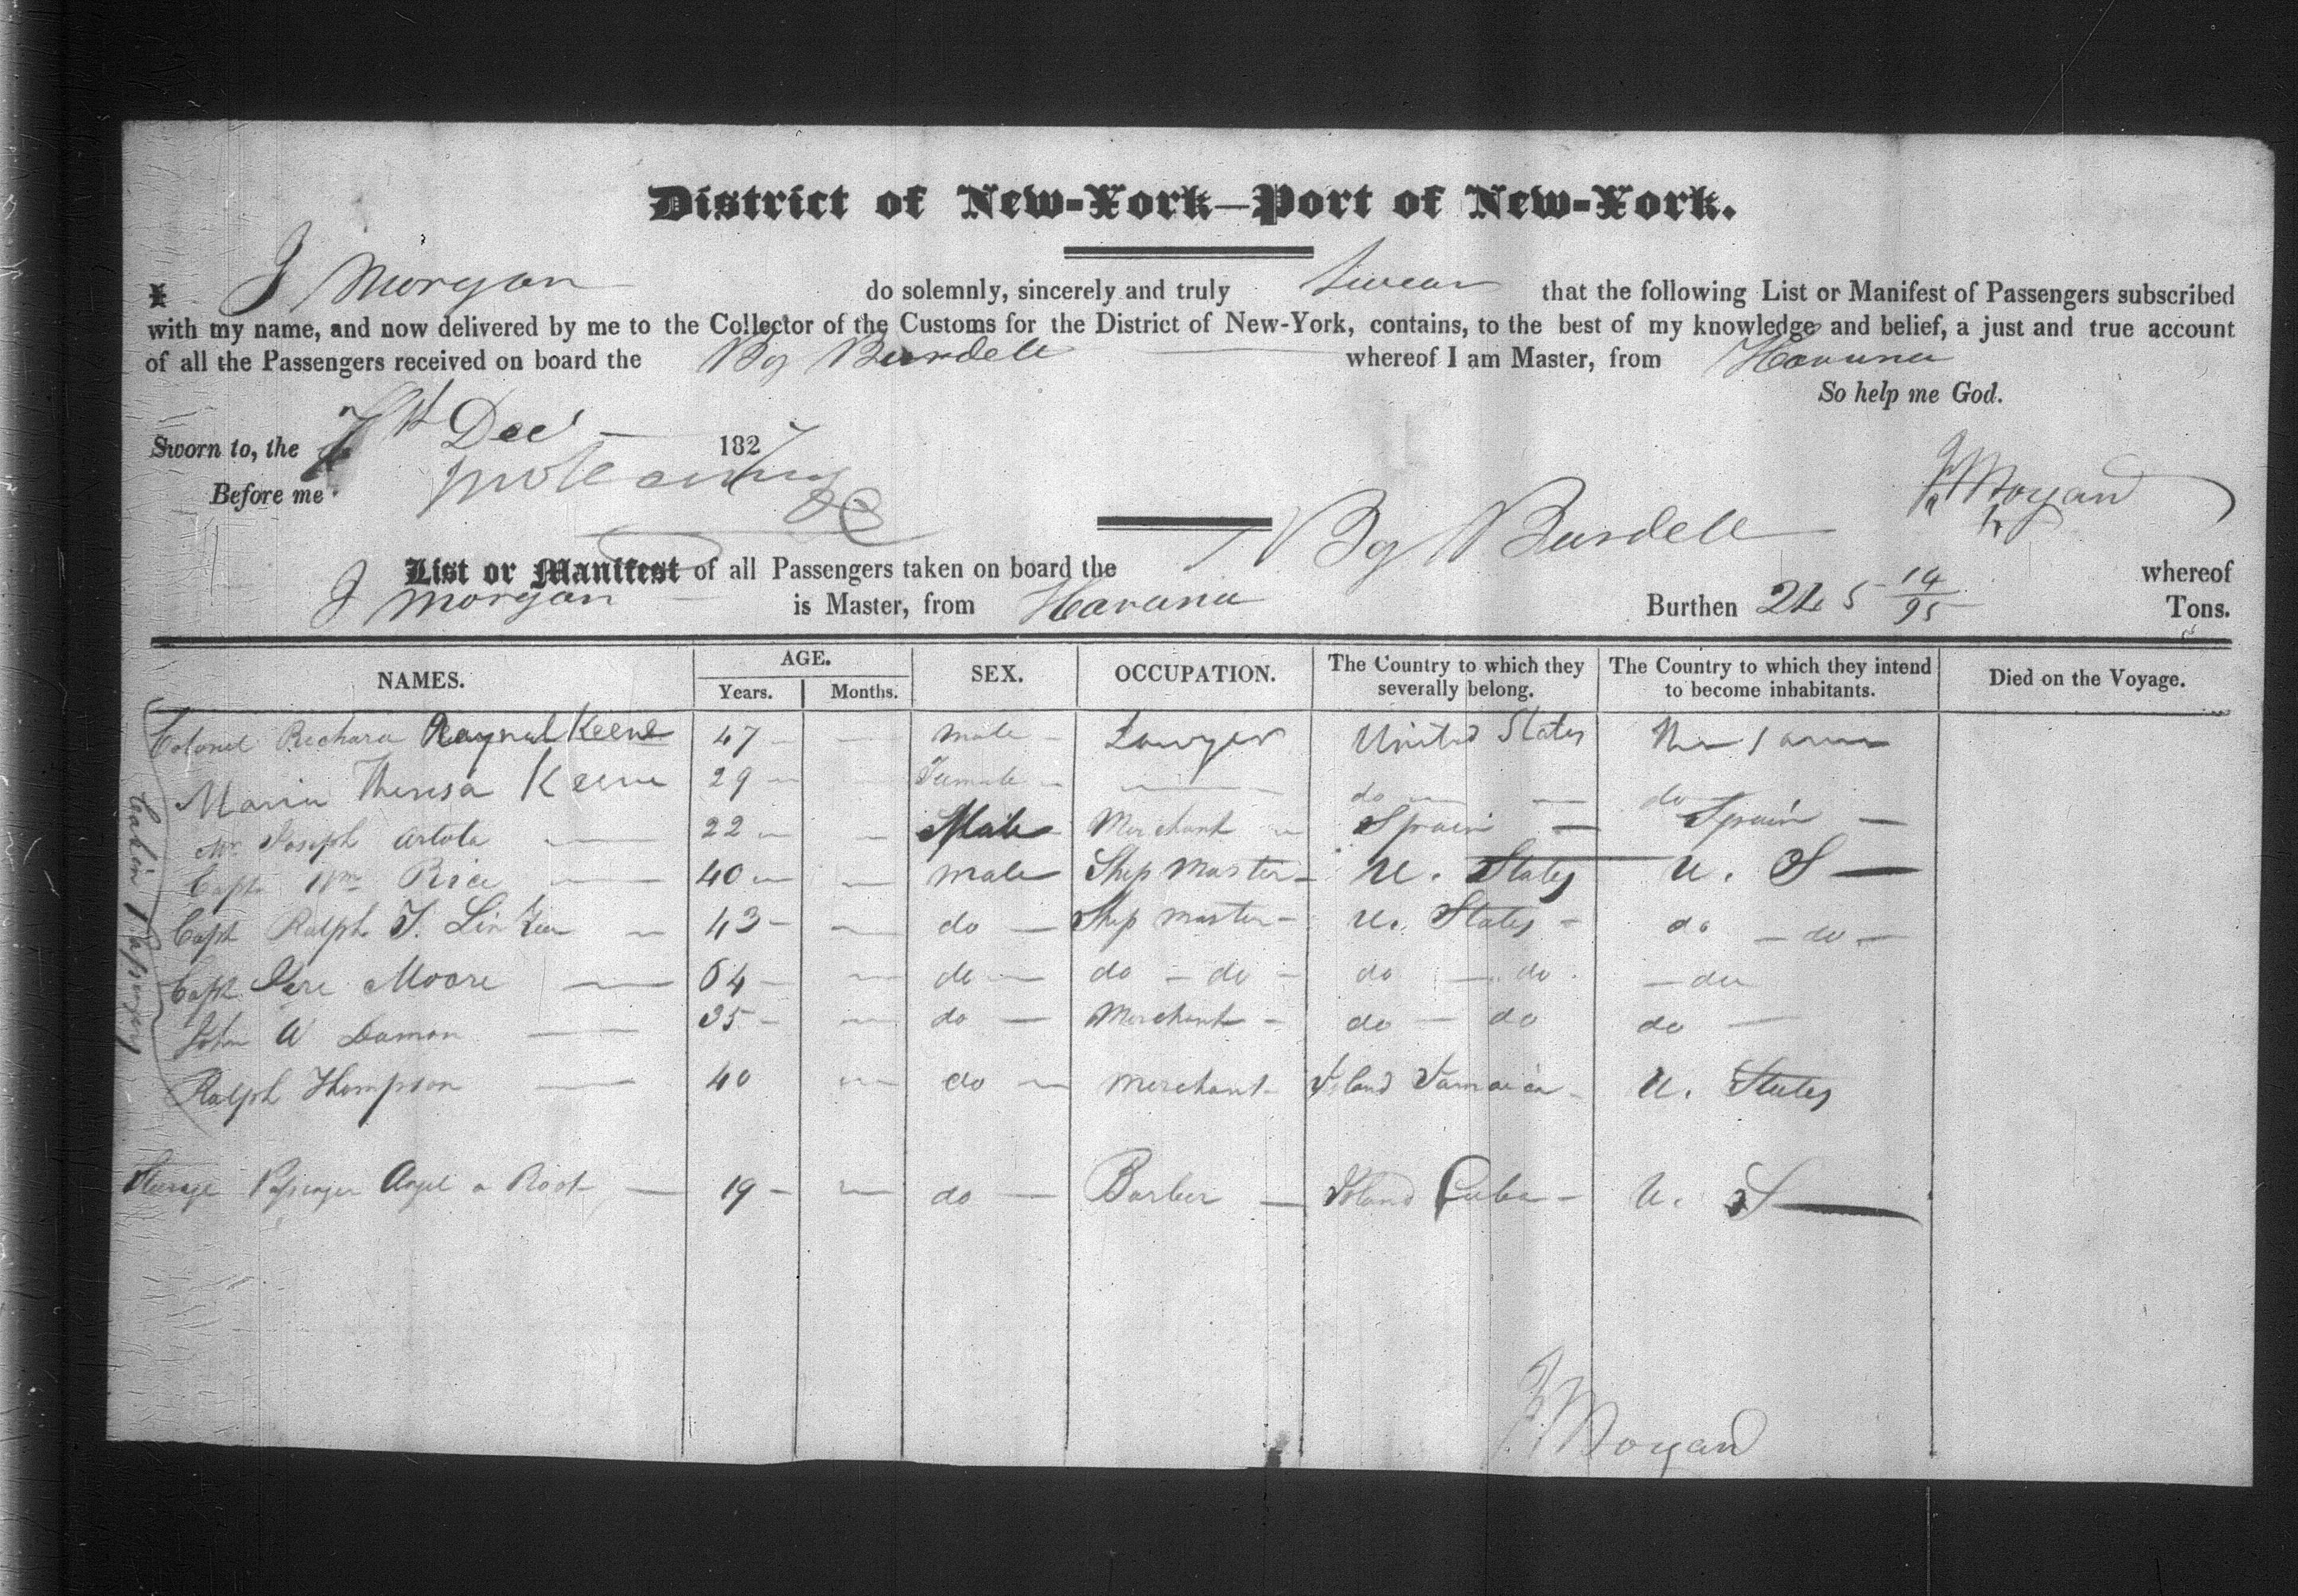 District of New-York—Port of New-York.
I J Morgan do solemnly, sincerely and truly Swear that the following List or Manifest of Passengers subscribed
with my name, and now delivered by me to the Collector of the Customs for the District of New-York, contains, to the best of my knowledge and belief, a just and true account
of all the Passengers received on board the Bg Burdell whereof I am Master, from Havana
So help me God.
Sworn to, the 7th Decr 1827
Before me
J Morgan
List or Manifest of all Passengers taken on board the Bg Burdell whereof
J Morgan is Master, from Havana Burthen 245 14/95 Tons.
NAMES. AGE. Years. Months. SEX. OCCUPATION. The Country to which they severally belong. The Country to which they intend to become inhabitants. Died on the Voyage.
Cabin Passengers
Colonel Richard Raynal Keene 47 — — male — Lawyer United States
Maria Theresa Keene 29 — — Female — — do — — do
Mr Joseph Artola — 22 — — Male Merchant — Spain — Spain —
Capt Wm Rice — 40 — — male Ship Master — U. States U. S —
Capt Ralph T. — 43 — — do — Ship master — U. States — do — do —
Capt Moore — 64 — — do — do — do — do — do — do
John W Damon — 35 — — do — Merchant — do — do do —
Ralph Thompson — 40 — do — merchant — Island Jamaica — U. States
Steerage Passenger Angel a Root — 19 — — do — Barber — Island Cuba — U. S —
J Morgan